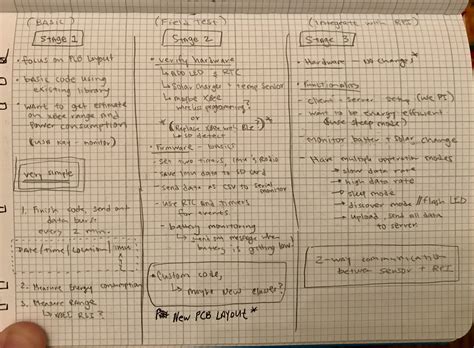 (BASIC)
Stage 1
• focus on PCB Layout
• basic code using
existing library
• want to get estimate
on xbee range and
power consumption)
(USB Key - monitor)
very simple
1. Finish code, send out
data burst
every 2 min.
Date/Time/Location/
2. Measure Energy Consumption
3. Measure Range
↳ XBEE RSSI?
(Field Test)
Stage 2
• verify hardware
↳ ADD LED & RTC
↳ Solar charger + temp sensor
↳ maybe xbee
wireless programming?
or
*(Replace XBee with BLE?)*
↳ SD detect
• Firmware - basics
- Set two timers, &Radio
- Save your data to SD card
- Send data as CSV to serial
monitor
- USE RTC and timers
for events
- battery monitoring
↳ send som message when
battery is getting low.
• Custom code,
↳ Maybe New
New PCB LAYOUT *
(Integrate with RPI)
Stage 3
• Hardware - no changes*
• Functionality
- client + Server setup (use PI)
- want to be energy efficient
(use sleep mode)
- Monitor batter + solar change
- Have multiple operation modes
→ slow data rate
→ high data rate
→ sleep mode
→ discover mode //flash LED
→ upload, send all data
to server
2-way communication
between sensor + RPI